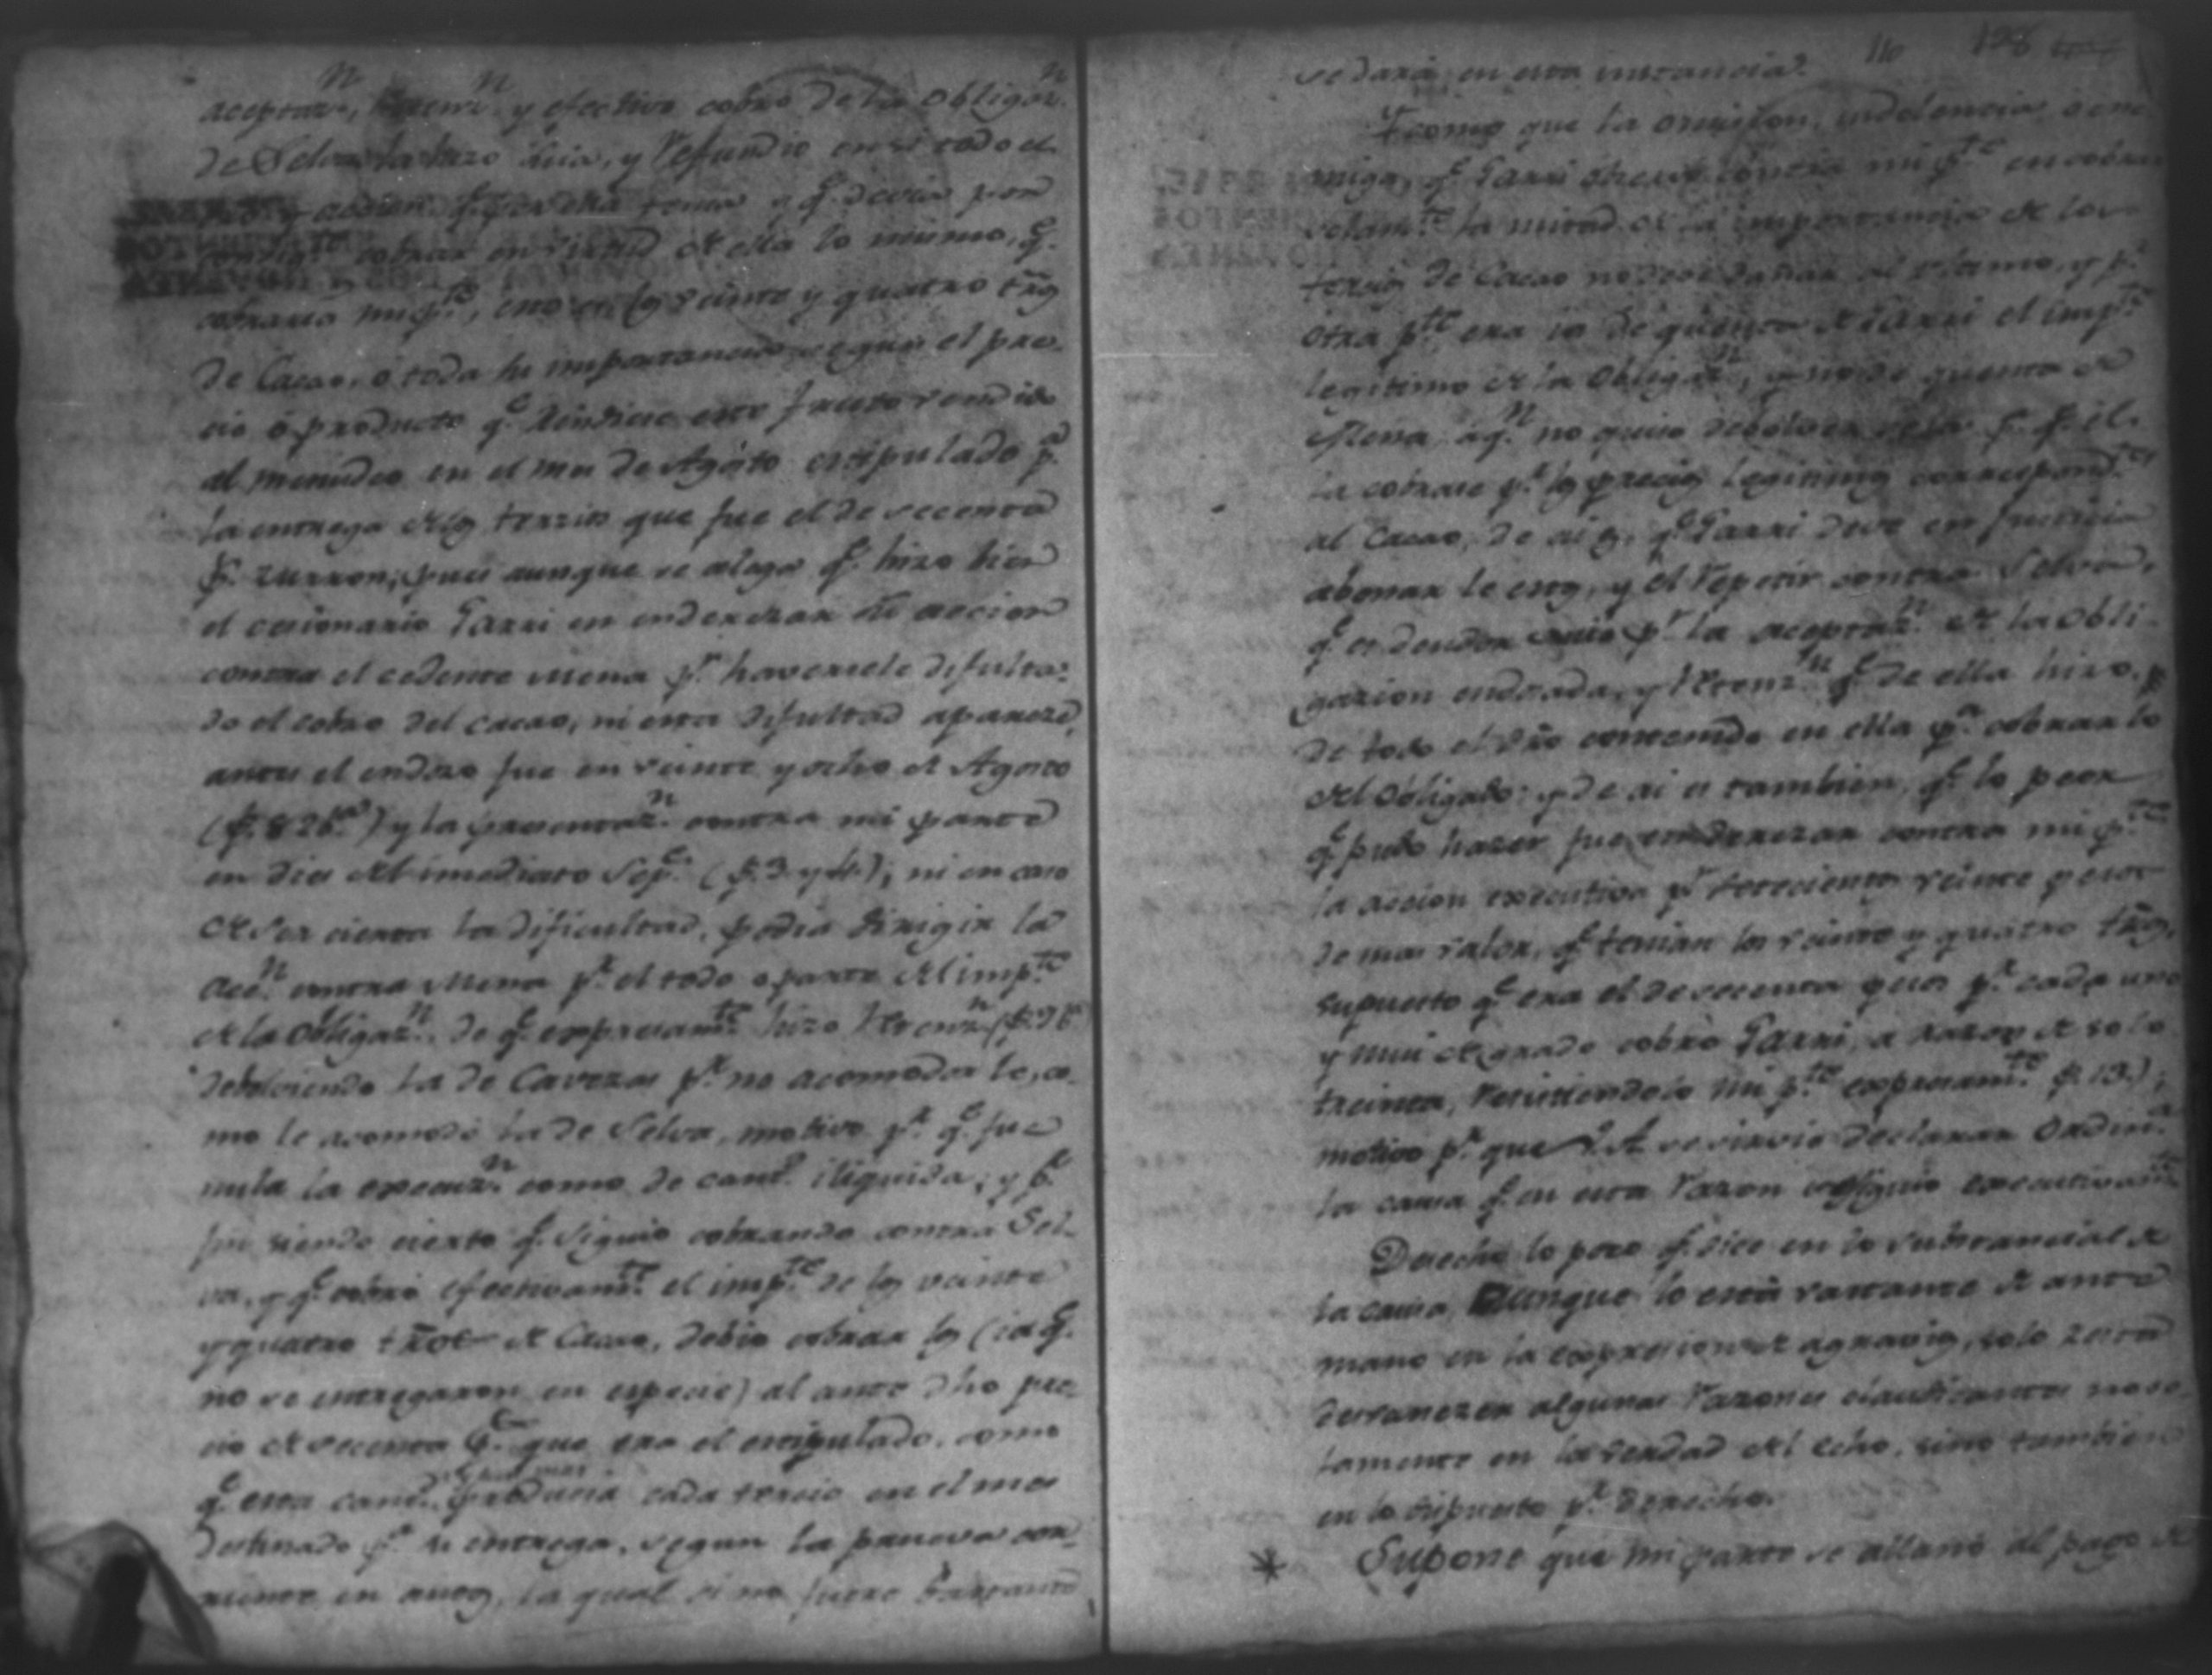 aceptazn, Retenzn y efectivo cobro de la obligazn
de Selva la hizo suia, y Refundio en si todo el
dro y accion qe por ella tenia y qe devia por
consigte cobrar en virtud de ella lo mismo, qe
cobraria mi pte, esto es, los veinte y quatro trs
de Cacao, o toda su importancia segun el pre-
cio o producto qe Rindiese este fruto vendido
al menudeo en el mes de Agosto estipulado pa
la entrega de los tercios que fue el de secenta
ps. zurron; pues aunque se alega qe hizo bien
el cecionario Garri en enderezar su accion
contra el cedente Mena pr haversele dificulta-
do el cobro del cacao, ni esta dificultad aparece,
antes el endozo fue en veinte y ocho de Agosto
(f. 8 2ba) y la presentazn contra mi parte
en dies del imediato Sepe (f. 3 y 4.); ni en caso
de ser cierta la dificultad, podia dirigir la
accn contra Mena pr el todo o parte del impte
de la obligazn de qe expresamte hizo Retenzn (f. 96
debolviendo la de Cavezas pr no acomodarle, co-
mo le acomodó la de Selva, motivo pr qe fue
nula la execuzn como de cantd iliquida; y pr
fin siendo cierto qe siguio cobrando contra Sel-
va, y qe cobró efectivamte el impte de los veinte
y quatro tros de Cacao, debio cobrar los (ia qe
no se entregaron en especie) al ante dho pre-
cio de secenta ps. que era el estipulado, como
qe esta cantd producia cada tercio en el mes
destinado pa su entrega, segun la prueva con-
niente en autos, la qual si no fuere bastante
116 128
se dará en esta instancia.
Y como que la omision, indolencia, o ene-
miga, qe Garri observó contra mi pte en cobrar
solamte la mitad de la importancia de los
tercios de Cacao no deve dañar al ultimo, y pr
otra pte era io de quenta de Garri el impte
legitimo de la obligazn, y no de quenta de
Mena, a qn no quiso debolversela pa qe el
la cobrase pr los precios legitimos correspondtes
al Cacao, de ai es, qe Garri deve en justicia
abonarle estos, y el Repetir contra Selva,
qe es deudor suio pr la aceptazn de la obli-
gazion endosada, y Retenzn qe de ella hizo, y
de todo el dro contenido en ella pa cobrar lo
del obligado: y de ai es tambien, qe lo peor
qe pudo hazer fue enderezar contra mi pte
la accion executiva pr setecientos veinte pesos
de mas valor, qe tenian los veinte y quatro trs,
supuesto qe era el de secenta pesos pr cada uno
y mui de grado cobró Garri, a razon de solo
treinta, resistiendolo mi pte expresamte f. 13.);
motivo pr que V. A. se sirvio declarar ordina
la causa qe en esta razon siguio executivamte
Derecho lo poco qe dice en lo substancial de
la causa, aunque lo está vastante de ante
mano en la expresion de agravios, solo resta
desvanezer algunas razones claudicantes no so-
lamente en la verdad del echo, sino tambien
en lo dispuesto pr derecho.
* Supone que mi parte se allanó al pago de